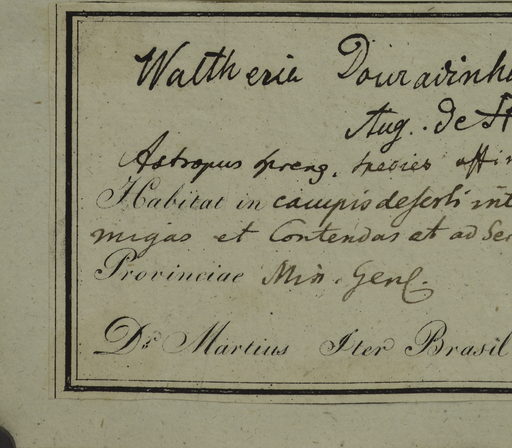 Waltheria Douradinha
Aug. de St
Astropus spreng. species affin
Habitat in campis deserti int
migas et Contendas et ad Se
Provinciae Min. Gen.
Dr. Martius Iter Brasil